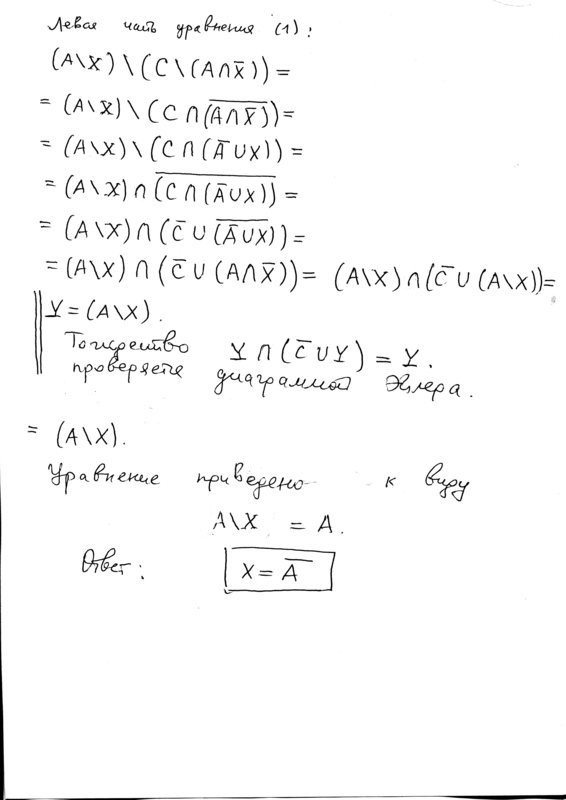 Левая часть уравнения (1):
(A\X)\(C\(A∩X̅))=
= (A\X)\(C∩(\overline{A∩X̅}))=
= (A\X)\(C∩(A̅∪X))=
= (A\X)∩\overline{(C∩(A̅∪X))}=
= (A\X)∩(C̅∪(\overline{A̅∪X}))=
= (A\X)∩(C̅∪(A∩X̅))= (A\X)∩(C̅∪(A\X))=
Y=(A\X).
Тождество Y∩(C̅∪Y)=Y.
проверяете диаграммой Эйлера.
= (A\X).
Уравнение приведено к виду
A\X = A.
Ответ: X=A̅